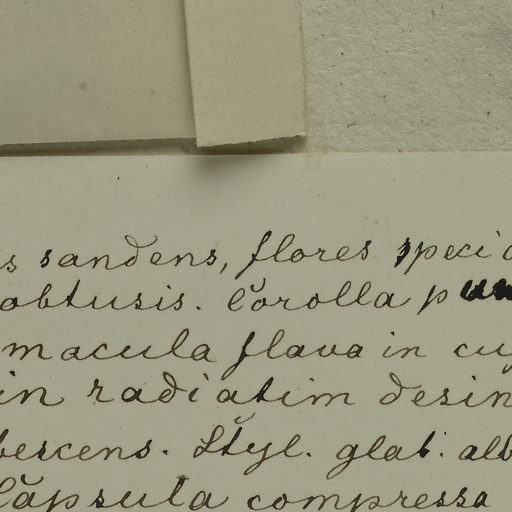 s sandens, flores speci
obtusis. Corolla pun
macula flava in cu
in radiatim desin
bescens. Styl. glab. alb
Capsula compressa